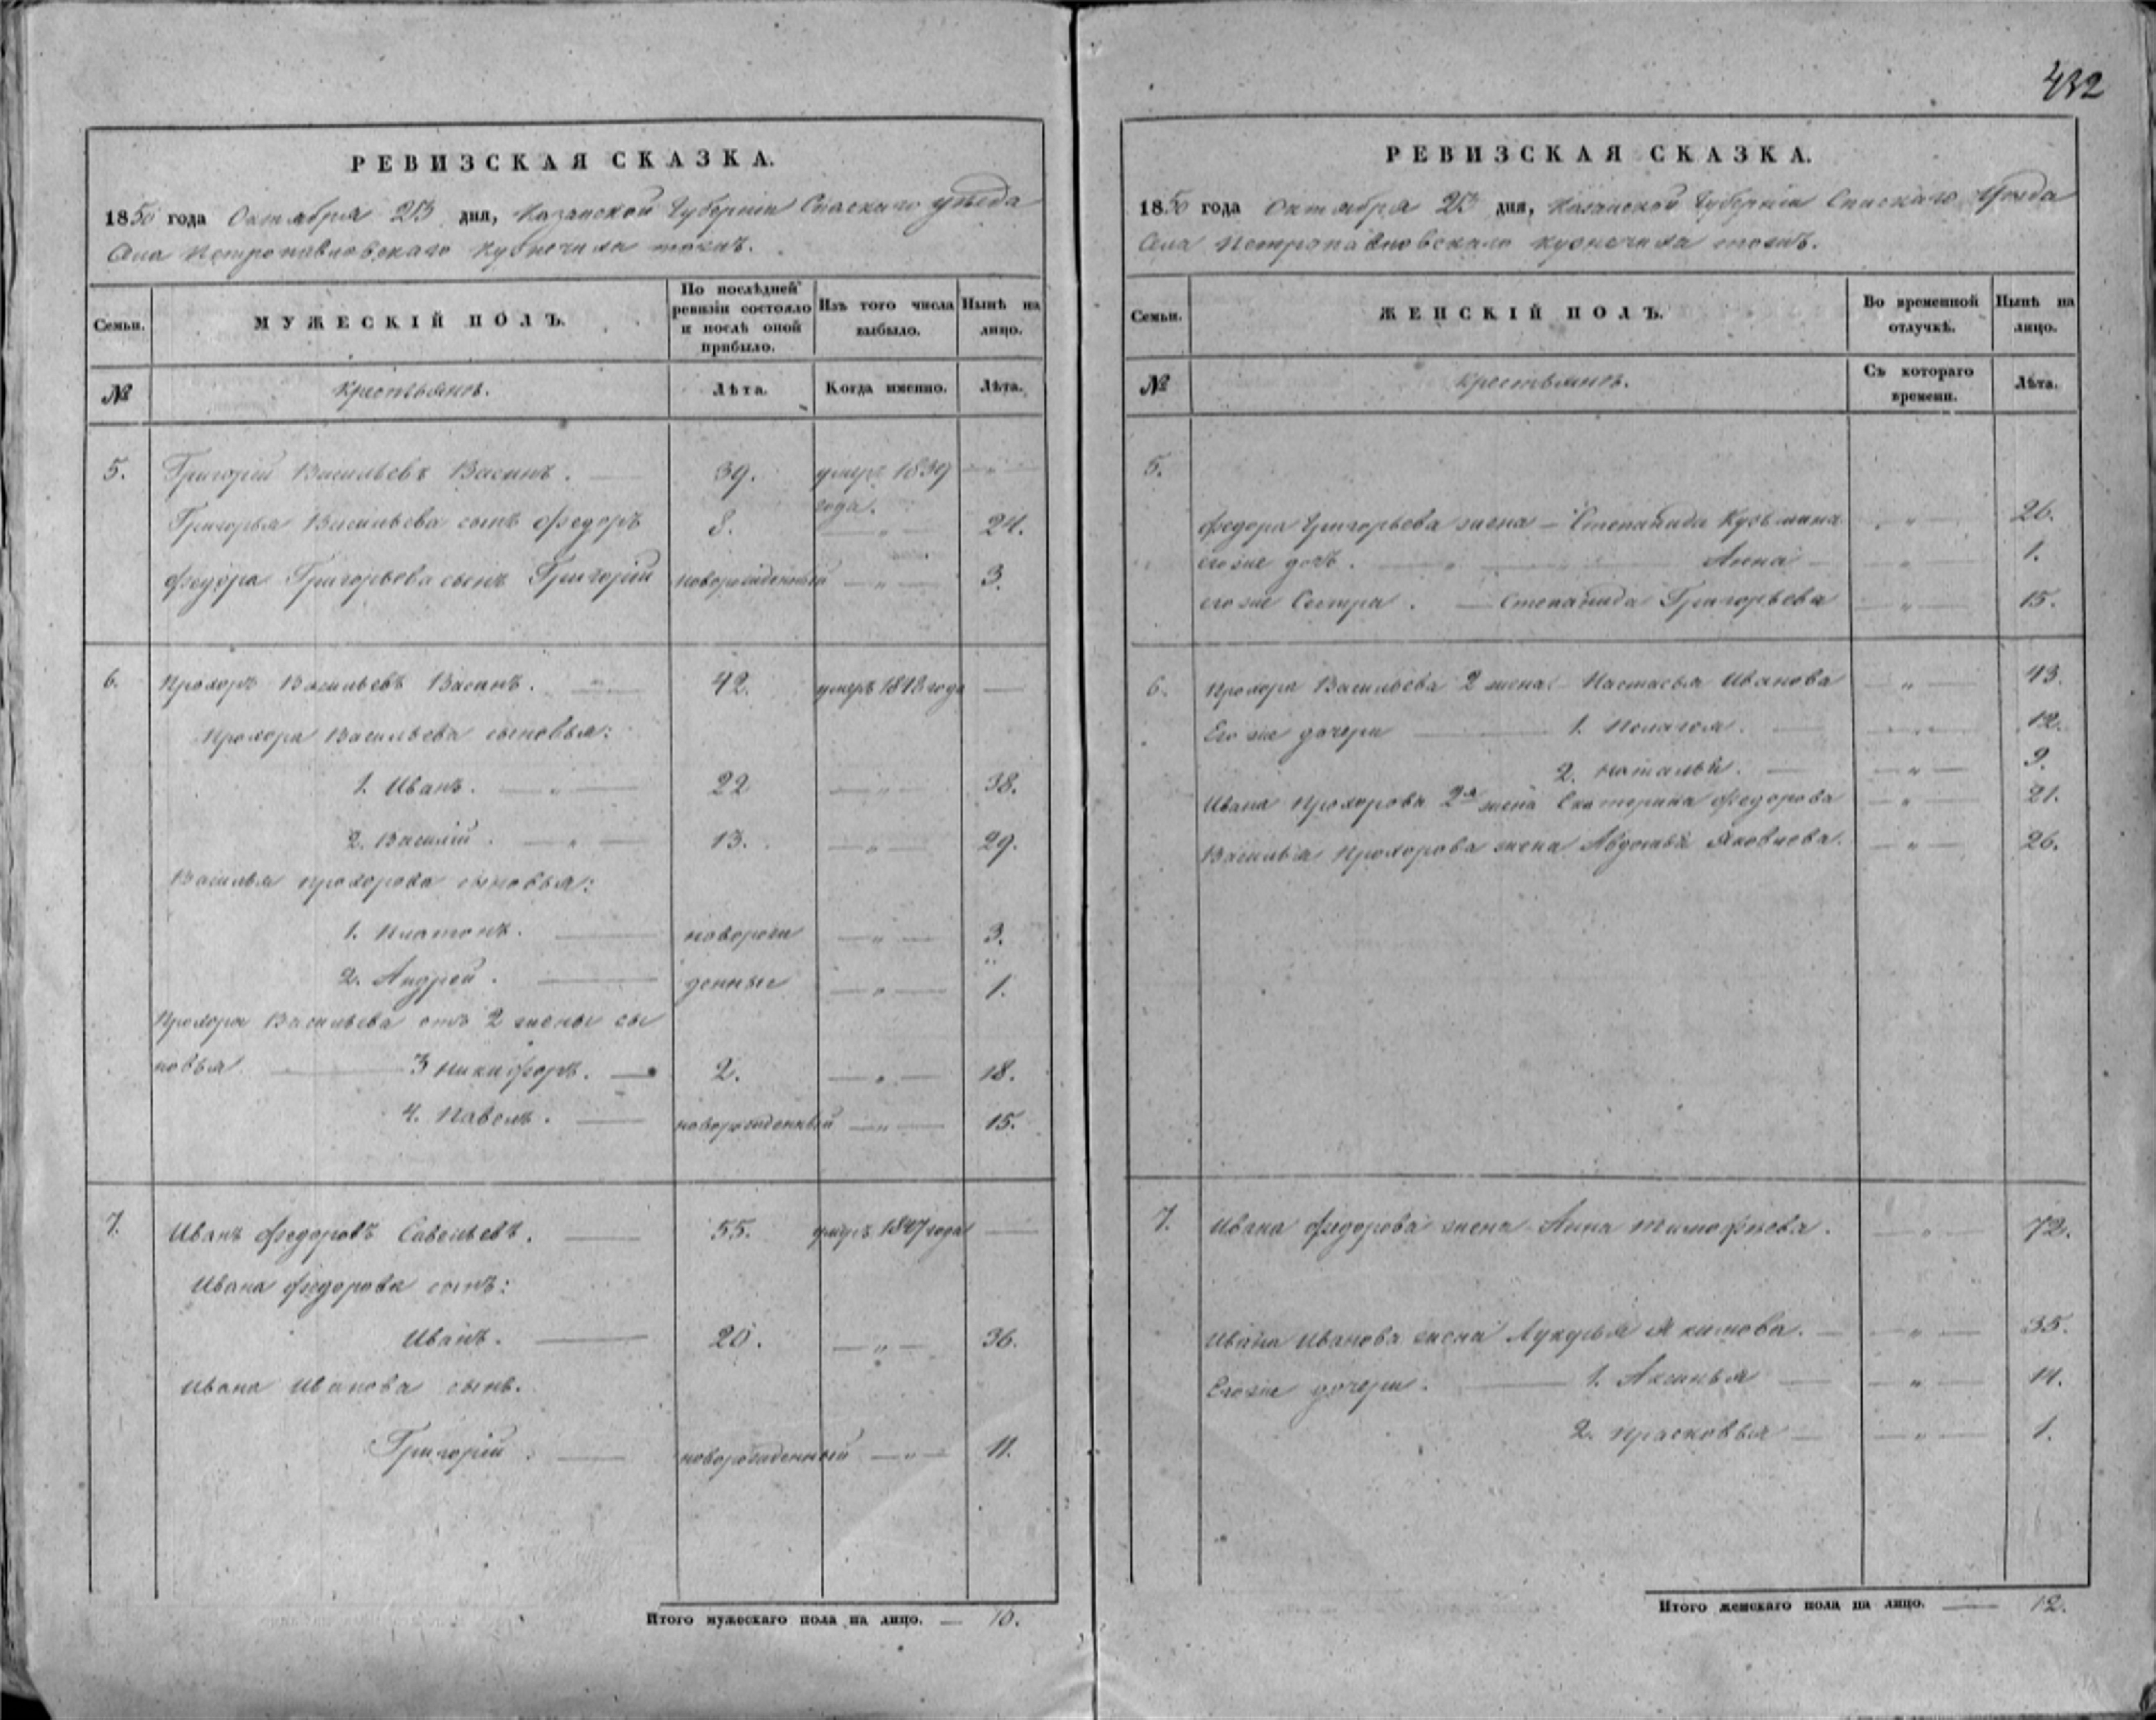 432
РЕВИЗСКАЯ СКАЗКА.
1850 года Октября 23 дня, Казанской Губернiи Спаскаго уѣзда
Села Петропавловскаго Кузнечиха тожъ.
Семьи.
МУЖЕСКIЙ ПОЛЪ.
По послѣдней ревизiи состояло и послѣ оной прибыло.
Изъ того числа выбыло.
Нынѣ на лицо.
№
Крестьянъ.
Лѣта.
Когда именно.
Лѣта.
5. Григорiй Васильевъ Васинъ. 39. умеръ 1839 года. — " —
Григорья Васильева сынъ Федоръ 8. — " — 24.
Федора Григорьева сынъ Григорiй новорожденный — " — 3.
6. Прохоръ Васильевъ Васинъ. — " — 42. умеръ года —
Прохора Васильева сыновья:
1. Иванъ. — " — 22 — " — 38.
2. Василiй. — " — 13. — " — 29.
Василья Прохорова сыновья:
1. Платонъ. — новорож — " — 3.
2. Андрей. — денные — " — 1.
Прохора Васильева отъ 2 жены сы
новья. — 3 Никифоръ. — 2. — " — 18.
4. Павелъ. — новорожденный — " — 15.
7. Иванъ Федоровъ Савельевъ. — 55. умеръ 1847 года —
Ивана Федорова сынъ:
Иванъ. — 20. — " — 36.
Ивана Иванова сынъ.
Григорiй. — новорожденный — " — 11.
Итого мужескаго пола на лицо. — 10.
РЕВИЗСКАЯ СКАЗКА.
1850 года Октября 23 дня, Казанской Губернiи Спаскаго Уѣзда
Села Петропавловскаго Кузнечиха тожъ.
Семьи.
ЖЕНСКIЙ ПОЛЪ.
Во временной отлучкѣ.
Нынѣ на лицо.
№
Крестьянъ.
Съ котораго времени.
Лѣта.
5.
Федора Григорьева жена — Степанида Кузьмина — " — 26.
его же дочь. — " — Анна — " — 1.
его же Сестра. — Степанида Григорьева — " — 15.
6. Прохора Васильева 2 жена Настасья Иванова — " — 43.
Его же дочери — 1. Пелагея. — " — 12.
2. Наталья. — " — 9.
Ивана Прохорова 2я жена Екатерина Федорова — " — 21.
Василья Прохорова жена Авдотья Яковлева. — " — 26.
7. Ивана Федорова жена Анна Тимофѣева. — " — 72.
Ивана Иванова жена Лукерья Якимова. — " — 35.
Его же дочери. — 1. Аксинья — " — 14.
2. Прасковья — " — 1.
Итого женскаго пола на лицо. — 12.